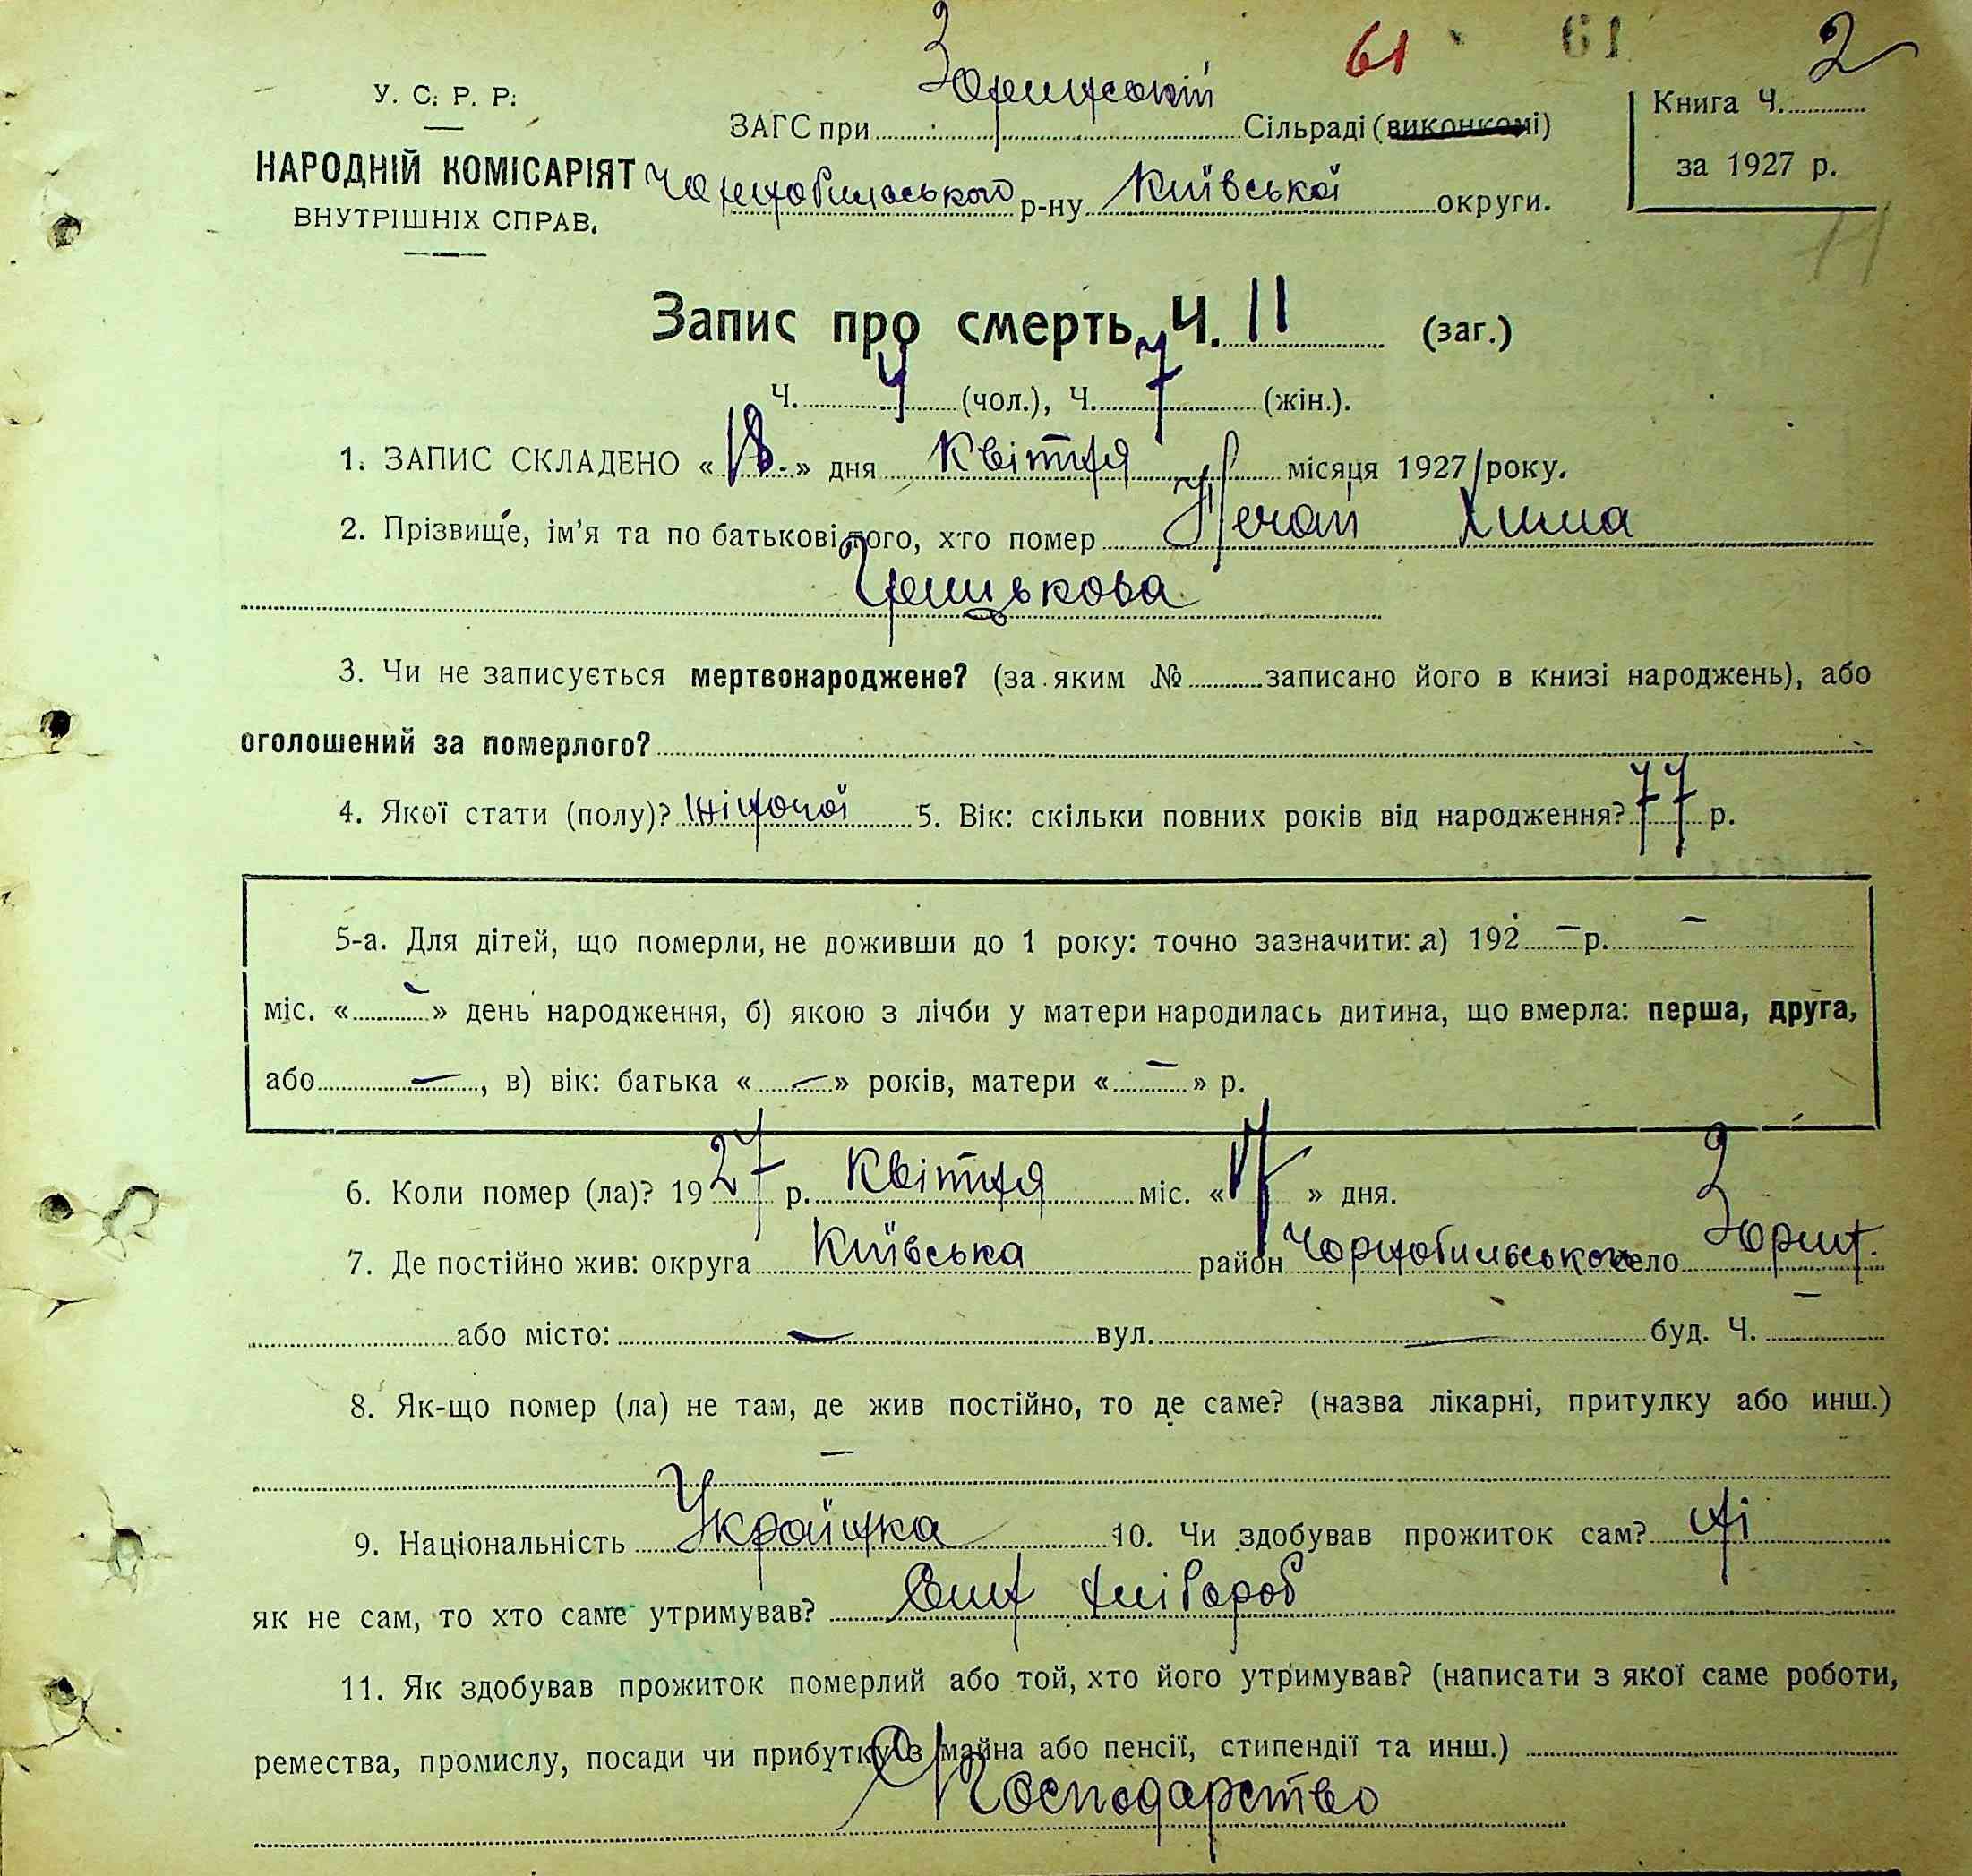 61 61 2
У. С. Р. Р.
ЗАГС при Зоринській Сільраді (виконкомі)
Книга Ч.
за 1927 р.
НАРОДНІЙ КОМІСАРІЯТ
ВНУТРІШНІХ СПРАВ.
Чорнобильського р-ну Київської округи.
11
Запис про смерть Ч. 11 (заг.)
Ч. 4 (чол.), Ч. 7 (жін.).
1. ЗАПИС СКЛАДЕНО «18» дня Квітня місяця 1927 року.
2. Прізвище, ім'я та по батькові того, хто помер Нечай Хима
Грицькова
3. Чи не записується мертвонароджене? (за яким № записано його в книзі народжень), або
оголошений за померлого?
4. Якої стати (полу)? жіночої 5. Вік: скільки повних років від народження? 77 р.
5-а. Для дітей, що померли, не доживши до 1 року: точно зазначити: а) 192 — р. —
міс. « — » день народження, б) якою з лічби у матери народилась дитина, що вмерла: перша, друга,
або —, в) вік: батька « — » років, матери « — » р.
6. Коли помер (ла)? 1927 р. Квітня міс. «17» дня.
7. Де постійно жив: округа Київська район Чорнобильського село Зорин.
або місто: — вул. — буд. Ч. —
8. Як-що помер (ла) не там, де жив постійно, то де саме? (назва лікарні, притулку або инш.)
—
9. Національність Українка 10. Чи здобував прожиток сам? ні
як не сам, то хто саме утримував? Син хлібороб
11. Як здобував прожиток померлий або той, хто його утримував? (написати з якої саме роботи,
ремества, промислу, посади чи прибутку з майна або пенсії, стипендії та инш.)
Господарство